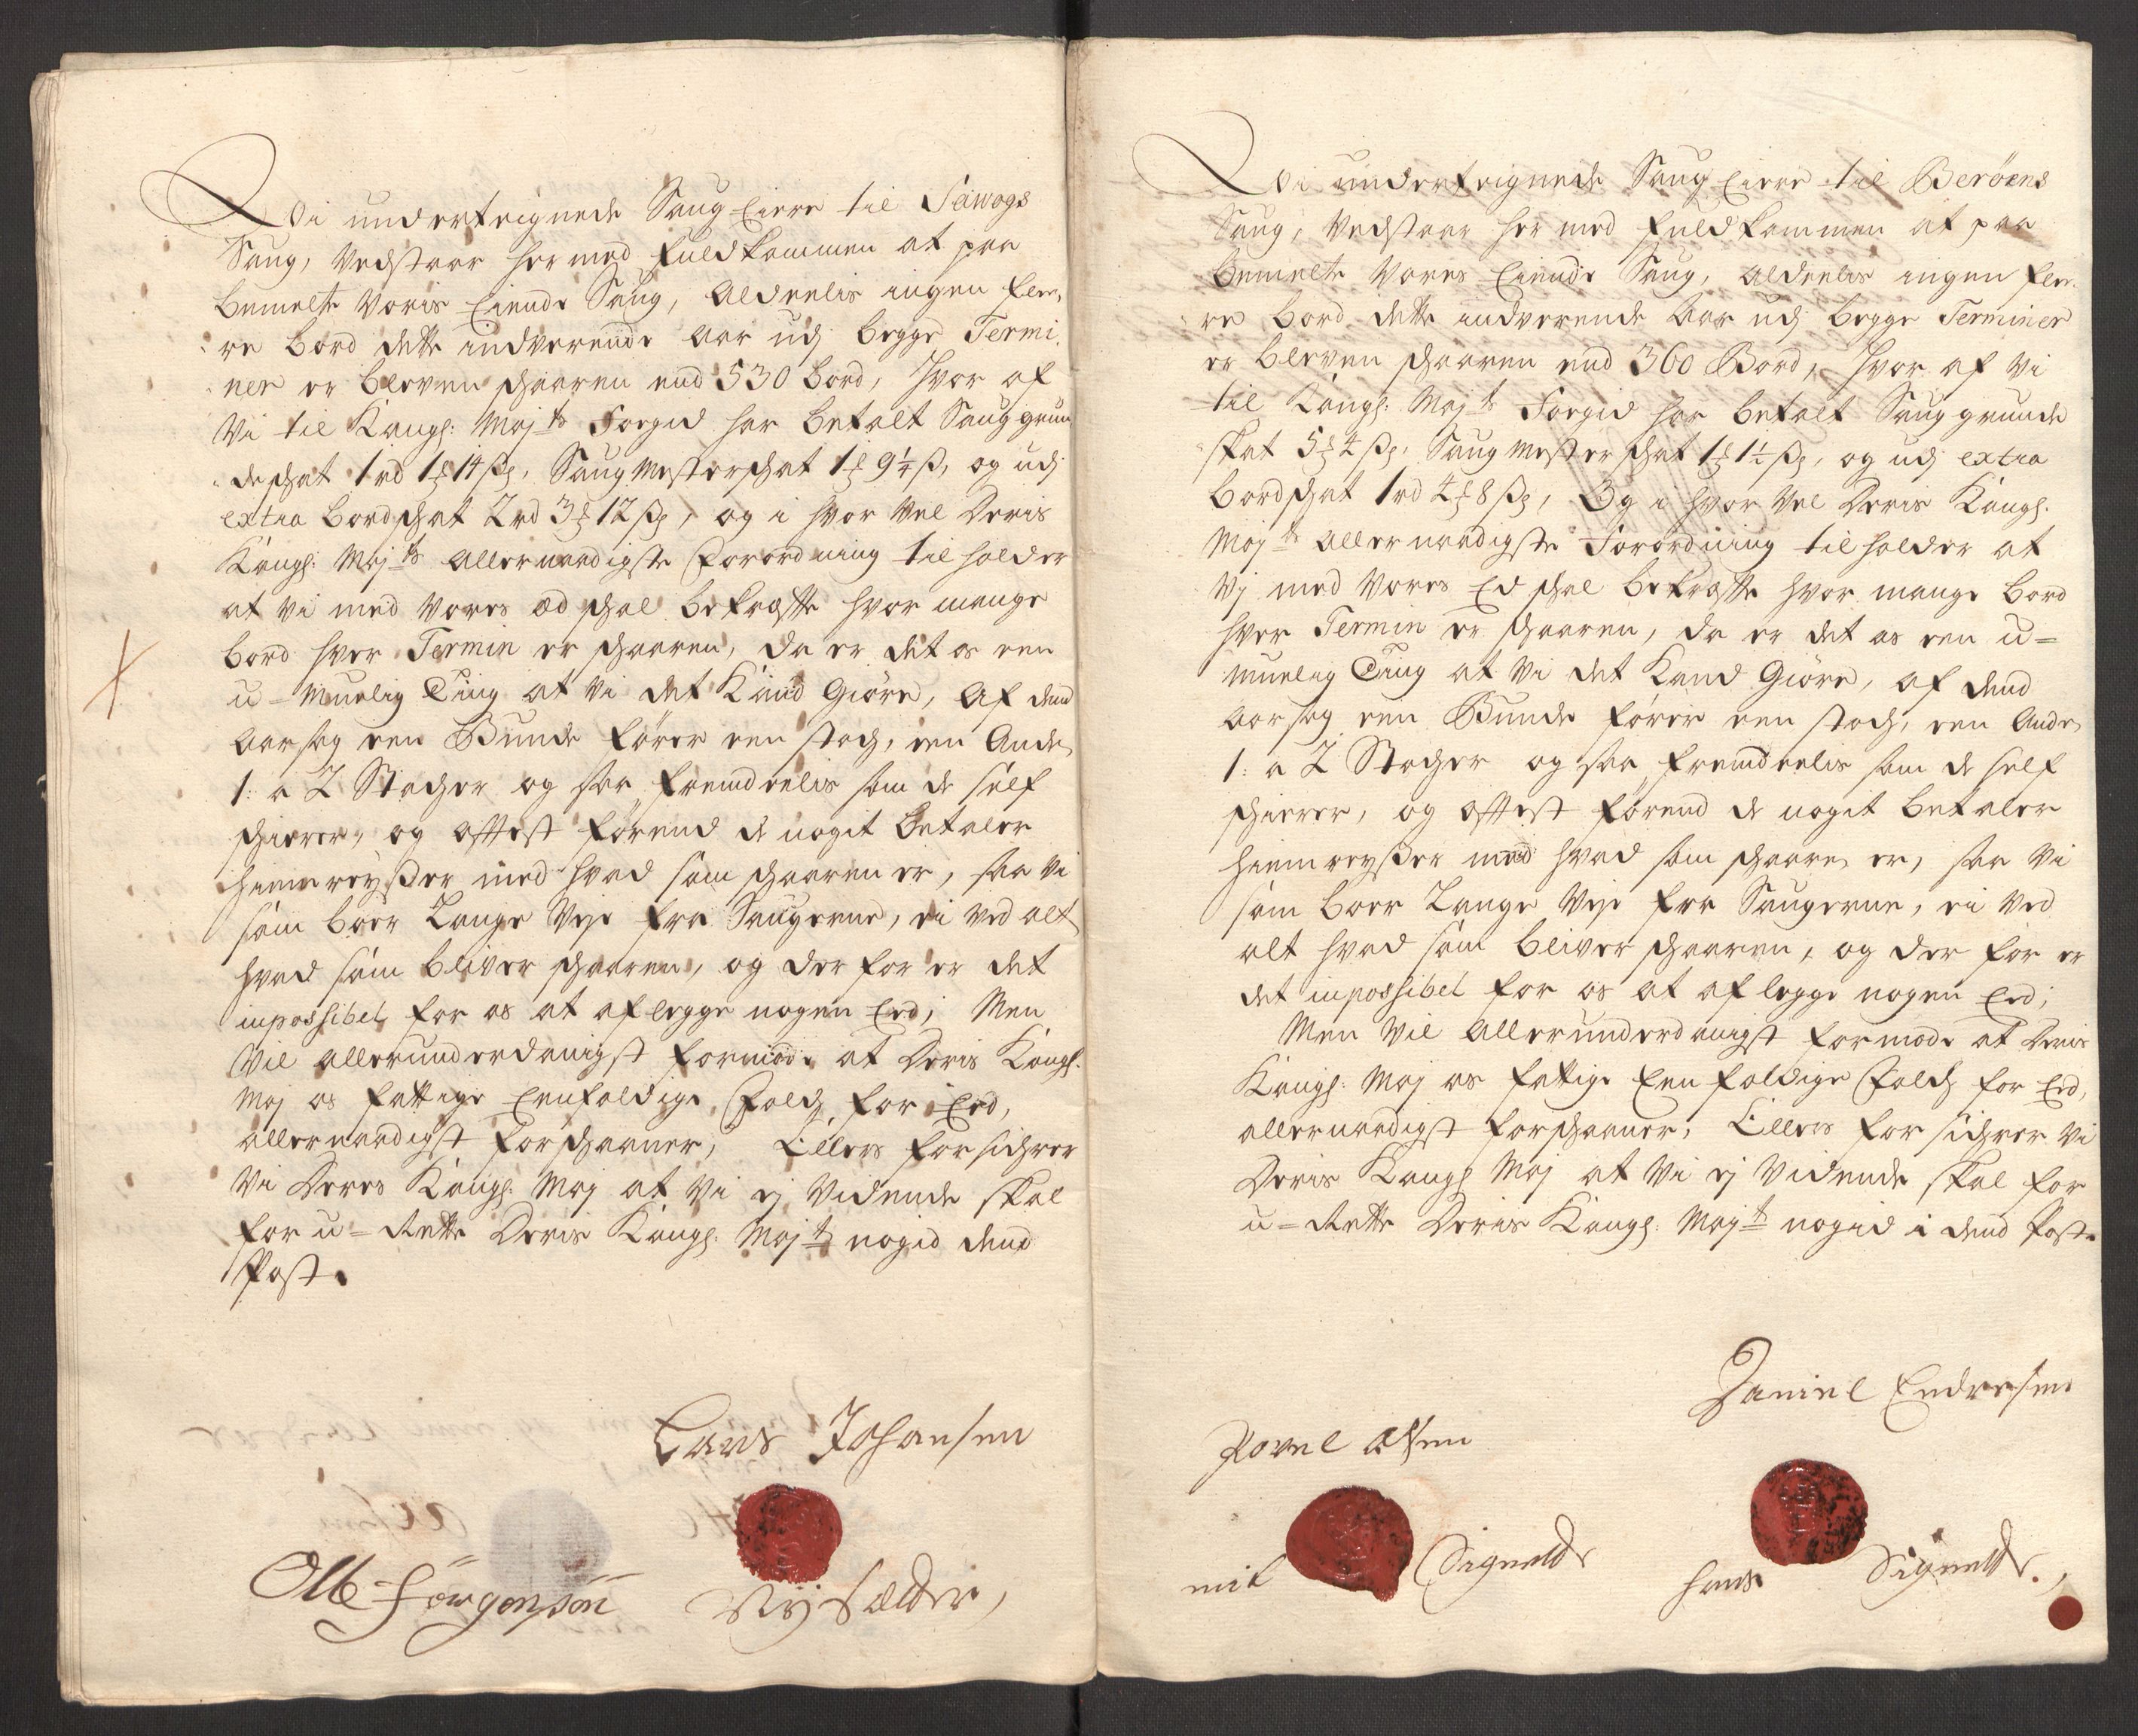 Wi underteignede Saug Eiere til Sawogs
Saug, Vedstaar her med fuldkommen at paa
bemelte Voris Eiende Saug, Aldeelis ingen fle-
re bord dette indverende aar udj begge Termi-
ner er bleven schaaren end 530 bord, hvor af
Vi til Kongl: Majts Foegid har betalt Sauggrun-
deschat 1 rd 1 ℔ 14 ß, Saugmesterschat 1 ℔ 9¼ ß, og udj
extra bordschat 2 rd 3 ℔ 12 ß, og i hvor vel Deris
Kongl: Majts allernaadigste Forordning tilholder
at vi med Vores æd schal bekræfte hvor mange
bord hver Termin er schaaren, da er det os een
u-muelig Ting at vi det Kand Giöre, Af dend
aarsag een Bunde förer een stoch, een Anden
1: a 2 Stocher og saa fremdeelis som de sielf
schierer, og oftest förend de nogit betaler
hiemreyßer med hvad som schaaren er, saa vi
som boer Lange Veje fra Saugerne, ei ved alt
hvad som bliver schaaren, og der for er det
inpossibel for os at aflegge nogen Eed; Men
Vil allerunderdanigst formode at Deris Kongl:
Maj os fattige Eenfoldige Folch for Eed,
allernaadigst forschaaner, Ellers forsichrer
Vi Deres Kongl: Maj at Vi ej Vidende skal
for u-Rette Deris Kongl: Majts nogid dend
Post.
Lars Johansen
Olle Jörgensön
Wi underteignede Saug Eiere til Beröens
Saug, Vedstaar her med fuldkommen at paa
bemelte Vores Eiende Saug, aldeelis ingen fle-
re bord dette indverende Aar udj begge Terminer
er bleven schaaren end 360 Bord, hvor af Vi
til Kongl: Majts Foegid har betalt Sauggrunde
skat 5 ℔ 4 ß, Saugmesterschat 1 ℔ 1½ ß, og udj extra
bordschat 1 rd 4 ℔ 8 ß, Og i hvor vel Deris Kongl:
Majts allernaadigste Forordning tilholder at
Vj med Vores Ed schal bekræfte hvor mange bord
hver Termin er schaaren, da er det os een u-
muelig Ting at vi det Kand Giöre, af dend
aarsag een Bunde förer een stoch, een Anden
1: a 2 Stocher og saa fremdeelis som de self
schierer, og oftest förend de nogit betaler
hiemreyßer med hvad som schaaren er, saa Vi
som boer Lange Veje fra Saugerne, ei ved
alt hvad som bliver schaaren, og der for er
det inpossibel for os at aflegge nogen Eed;
Men Vil allerunderdanigst formode at Deris
Kongl: Maj os fattige Eenfoldige Folch for Eed,
allernaadigst forschaaner, Ellers forsichrer Vi
Deris Kongl Maj at Vi ej Vidende skal for
u-Rette Deris Kongl: Majts nogid i dend Post.
Daniel Endresen
Povel Olsen
mit Signette
hans Signette.